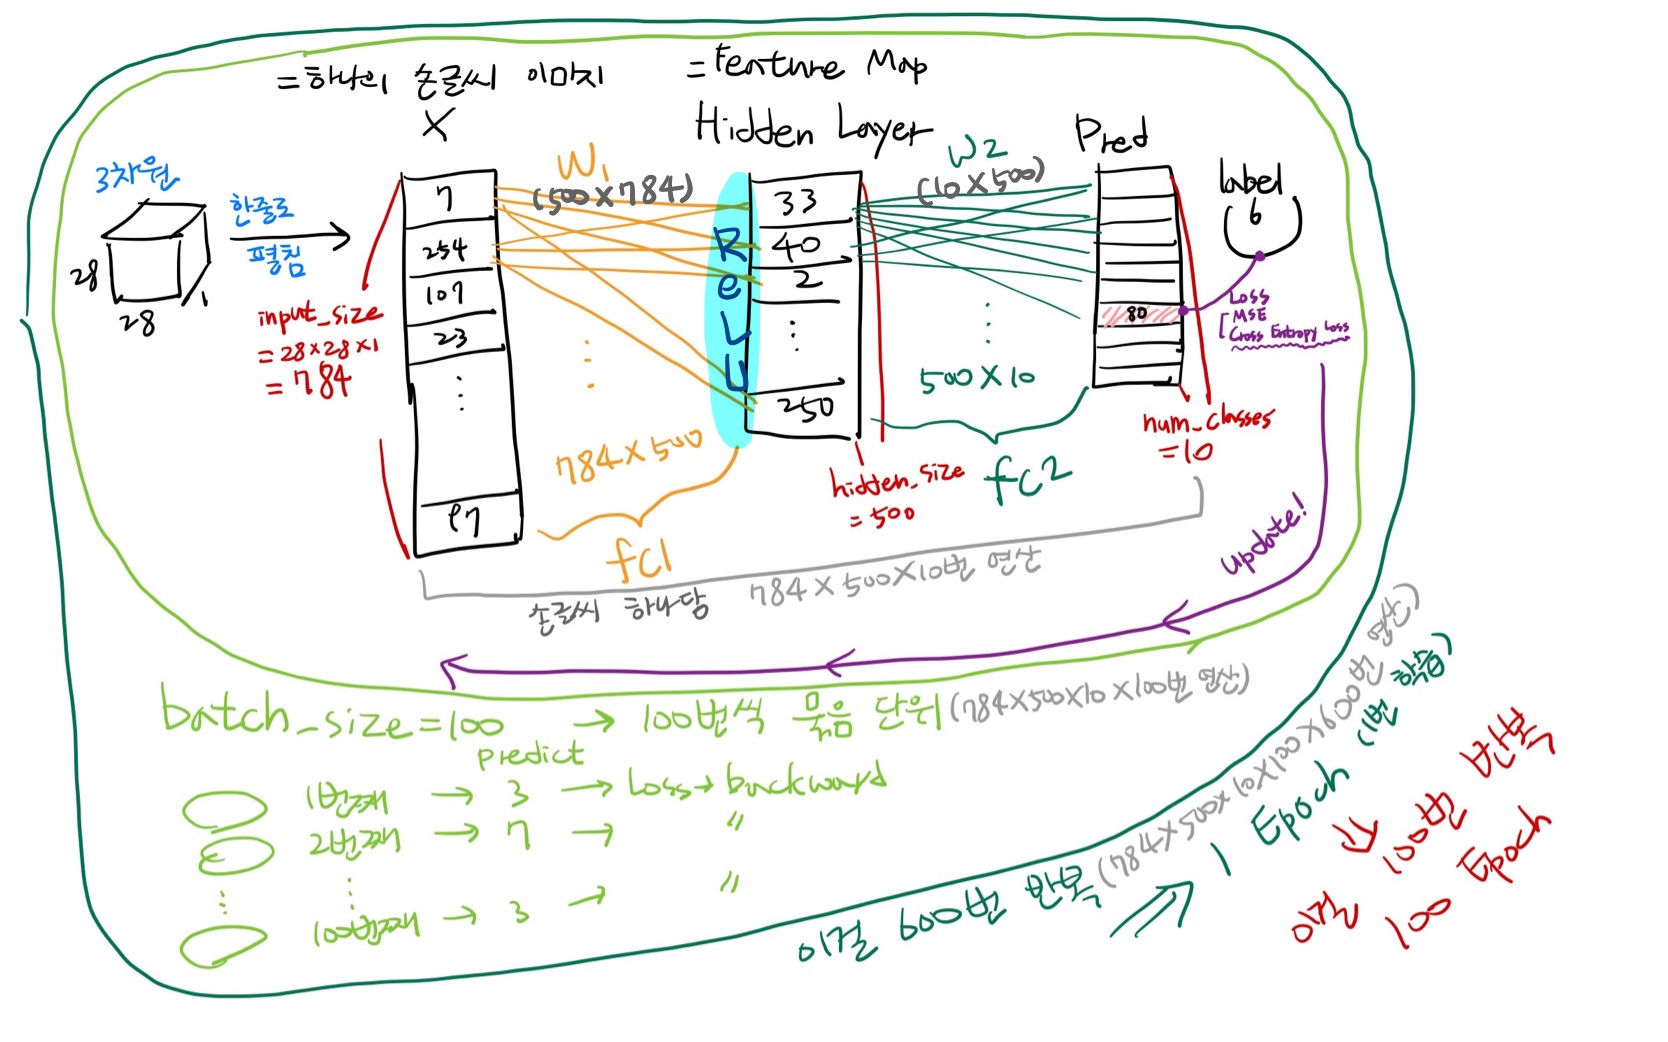 =하나의 손글씨 이미지
X
=Feature Map
Hidden Layer
Pred
label
6
3차원
28
28
1
한줄로
펼침
input_size
=28×28×1
=784
7
254
107
23
⋮
97
W1
(500×784)
⋮
784×500
fc1
ReLU
33
40
2
⋮
250
hidden_size
=500
W2
(10×500)
⋮
500×10
fc2
80
num_classes
=10
Loss
MSE
Cross Entropy Loss
update!
손글씨 하나당 784×500×10번 연산
batch_size=100 → 100번씩 묶음 단위(784×500×10×100번 연산)
predict
1번째 → 3 → Loss→backward
2번째 → 7 → "
⋮ ⋮
100번째 → 3 → "
이걸 600번 반복(784×500×10×100×600번 연산)
⇒ 1 Epoch (1번 학습)
이걸 ⇒ 100번 반복
100 Epoch